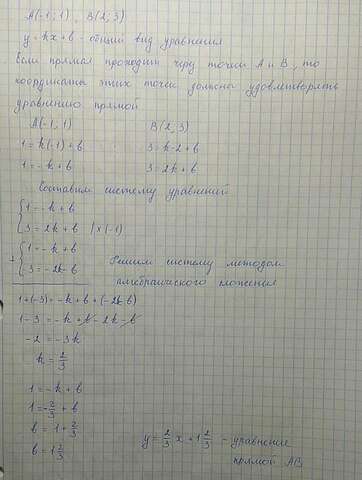 A(-1; 1) , B(2; 3)
y = kx + b - общий вид уравнения
если прямая проходит через точки A и B, то
координаты этих точек должны удовлетворять
уравнению прямой
A(-1; 1) B(2; 3)
1 = k(-1) + b 3 = k·2 + b
1 = -k + b 3 = 2k + b
Составим систему уравнений
{ 1 = -k + b
{ 3 = 2k + b | ×(-1)
{ 1 = -k + b
+ { -3 = -2k - b Решим систему методом
алгебраического сложения
1 + (-3) = -k + b + (-2k - b)
1 - 3 = -k + b - 2k - b
-2 = -3k
k = 2/3
1 = -k + b
1 = -2/3 + b
b = 1 + 2/3
b = 1 2/3 y = 2/3 x + 1 2/3 - уравнение
прямой AB